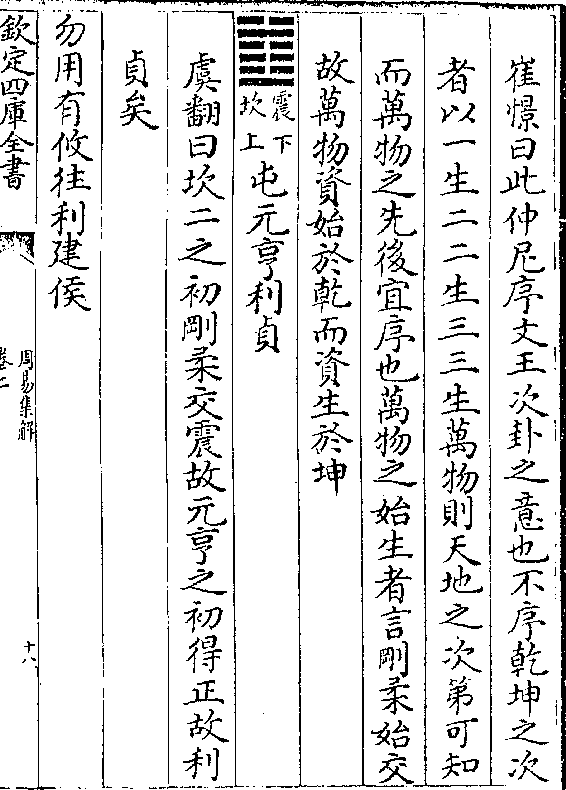 崔憬曰此仲尼序文王次卦之意也不序乾坤之次
者以一生二二生三三生萬物則天地之次第可知
而萬物之先後宜序也萬物之始生者言剛柔始交
故萬物資始於乾而資生於坤
震下
坎上
屯元亨利貞
虞翻曰坎二之初剛柔交震故元亨之初得正故利
貞矣
勿用有攸往利建侯
欽定四庫全書
周易集解
卷二
十八